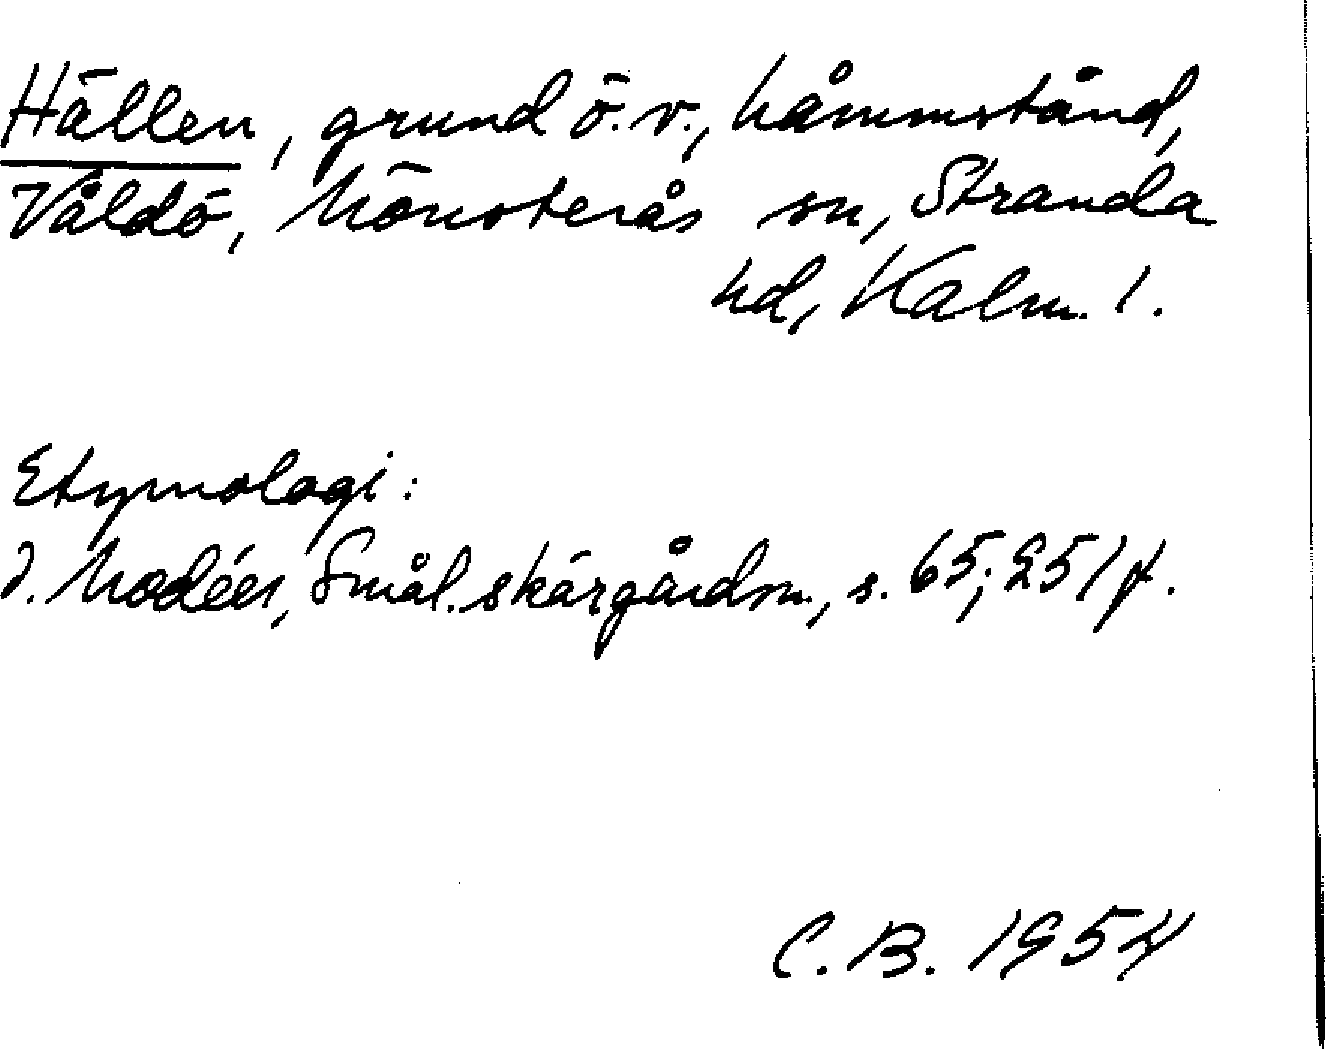 Hällen, grund ö. v., håmmstånd,
Våldö, Mönsterås sn, Stranda
hd, Kalm. l.
Etymologi:
J. Modéer, Smål. skärgårdsn., s. 65; 251 f.
C. B. 1954